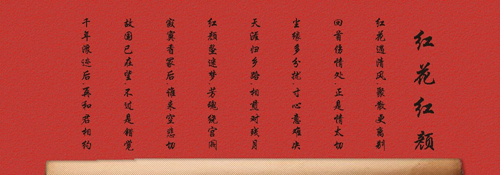 红花红颜
红花遇清风 聚散更离别
回首伤情处 正是情太切
尘缘多分扰 寸心意难决
天涯归乡路 相煎对残月
红颜坠迷梦 芳魂绕宫阙
寂寞香冢后 谁来空悲切
故国已在望 不过是错觉
千年后 再和君相约